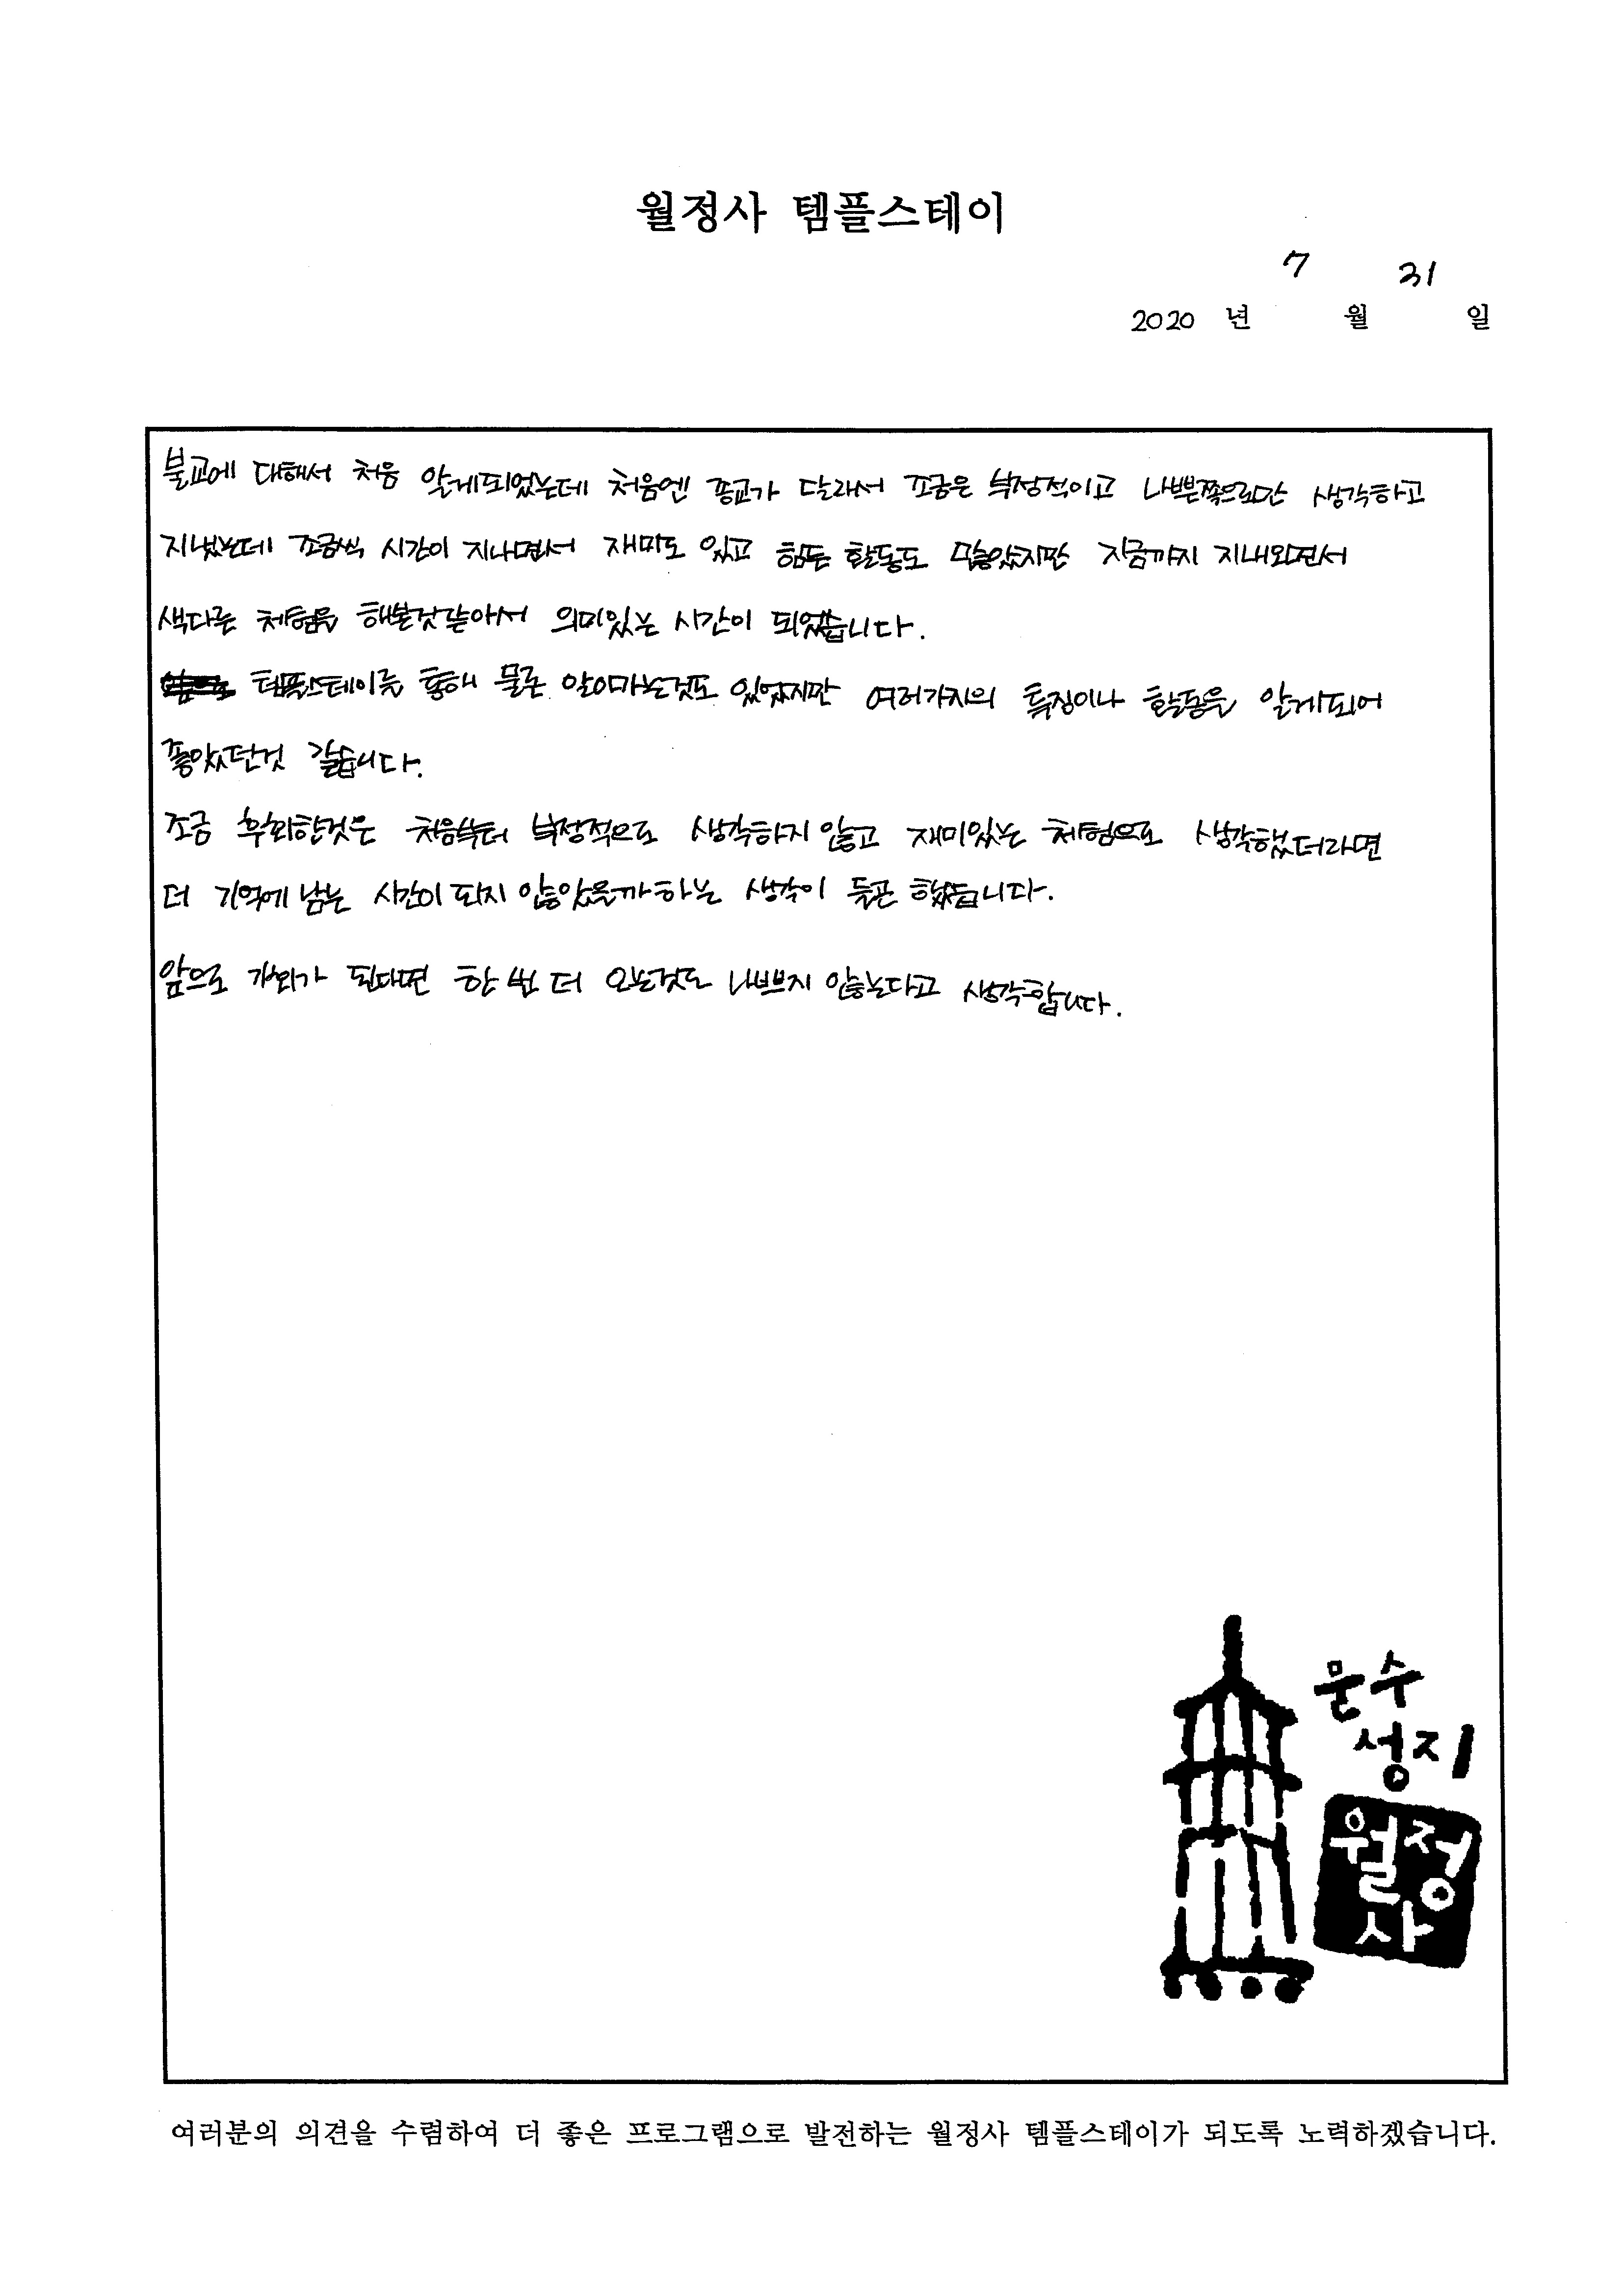 월정사 템플스테이
7 31
2020 년 월 일
불교에 대해서 처음 알게되었는데 처음엔 종교가 달라서 조금은 부정적이고 나쁜쪽으로만 생각하고
지냈는데 조금씩 시간이 지나면서 재미도 있고 힘든 활동도 많았지만 지금까지 지내오면서
색다른 체험을 해본것같아서 의미있는 시간이 되었습니다.
템플스테이를 통해 물론 알아가는것도 있었지만 여러가지의 특징이나 활동을 알게되어
좋았던것 같습니다.
조금 후회한것은 처음부터 부정적으로 생각하지 않고 재미있는 체험으로 생각했더라면
더 기억에 남는 시간이 되지 않았을까하는 생각이 들곤 했습니다.
앞으로 기회가 된다면 한 번 더 오는것도 나쁘지 않는다고 생각합니다.
문수
성지
월정
사
여러분의 의견을 수렴하여 더 좋은 프로그램으로 발전하는 월정사 템플스테이가 되도록 노력하겠습니다.